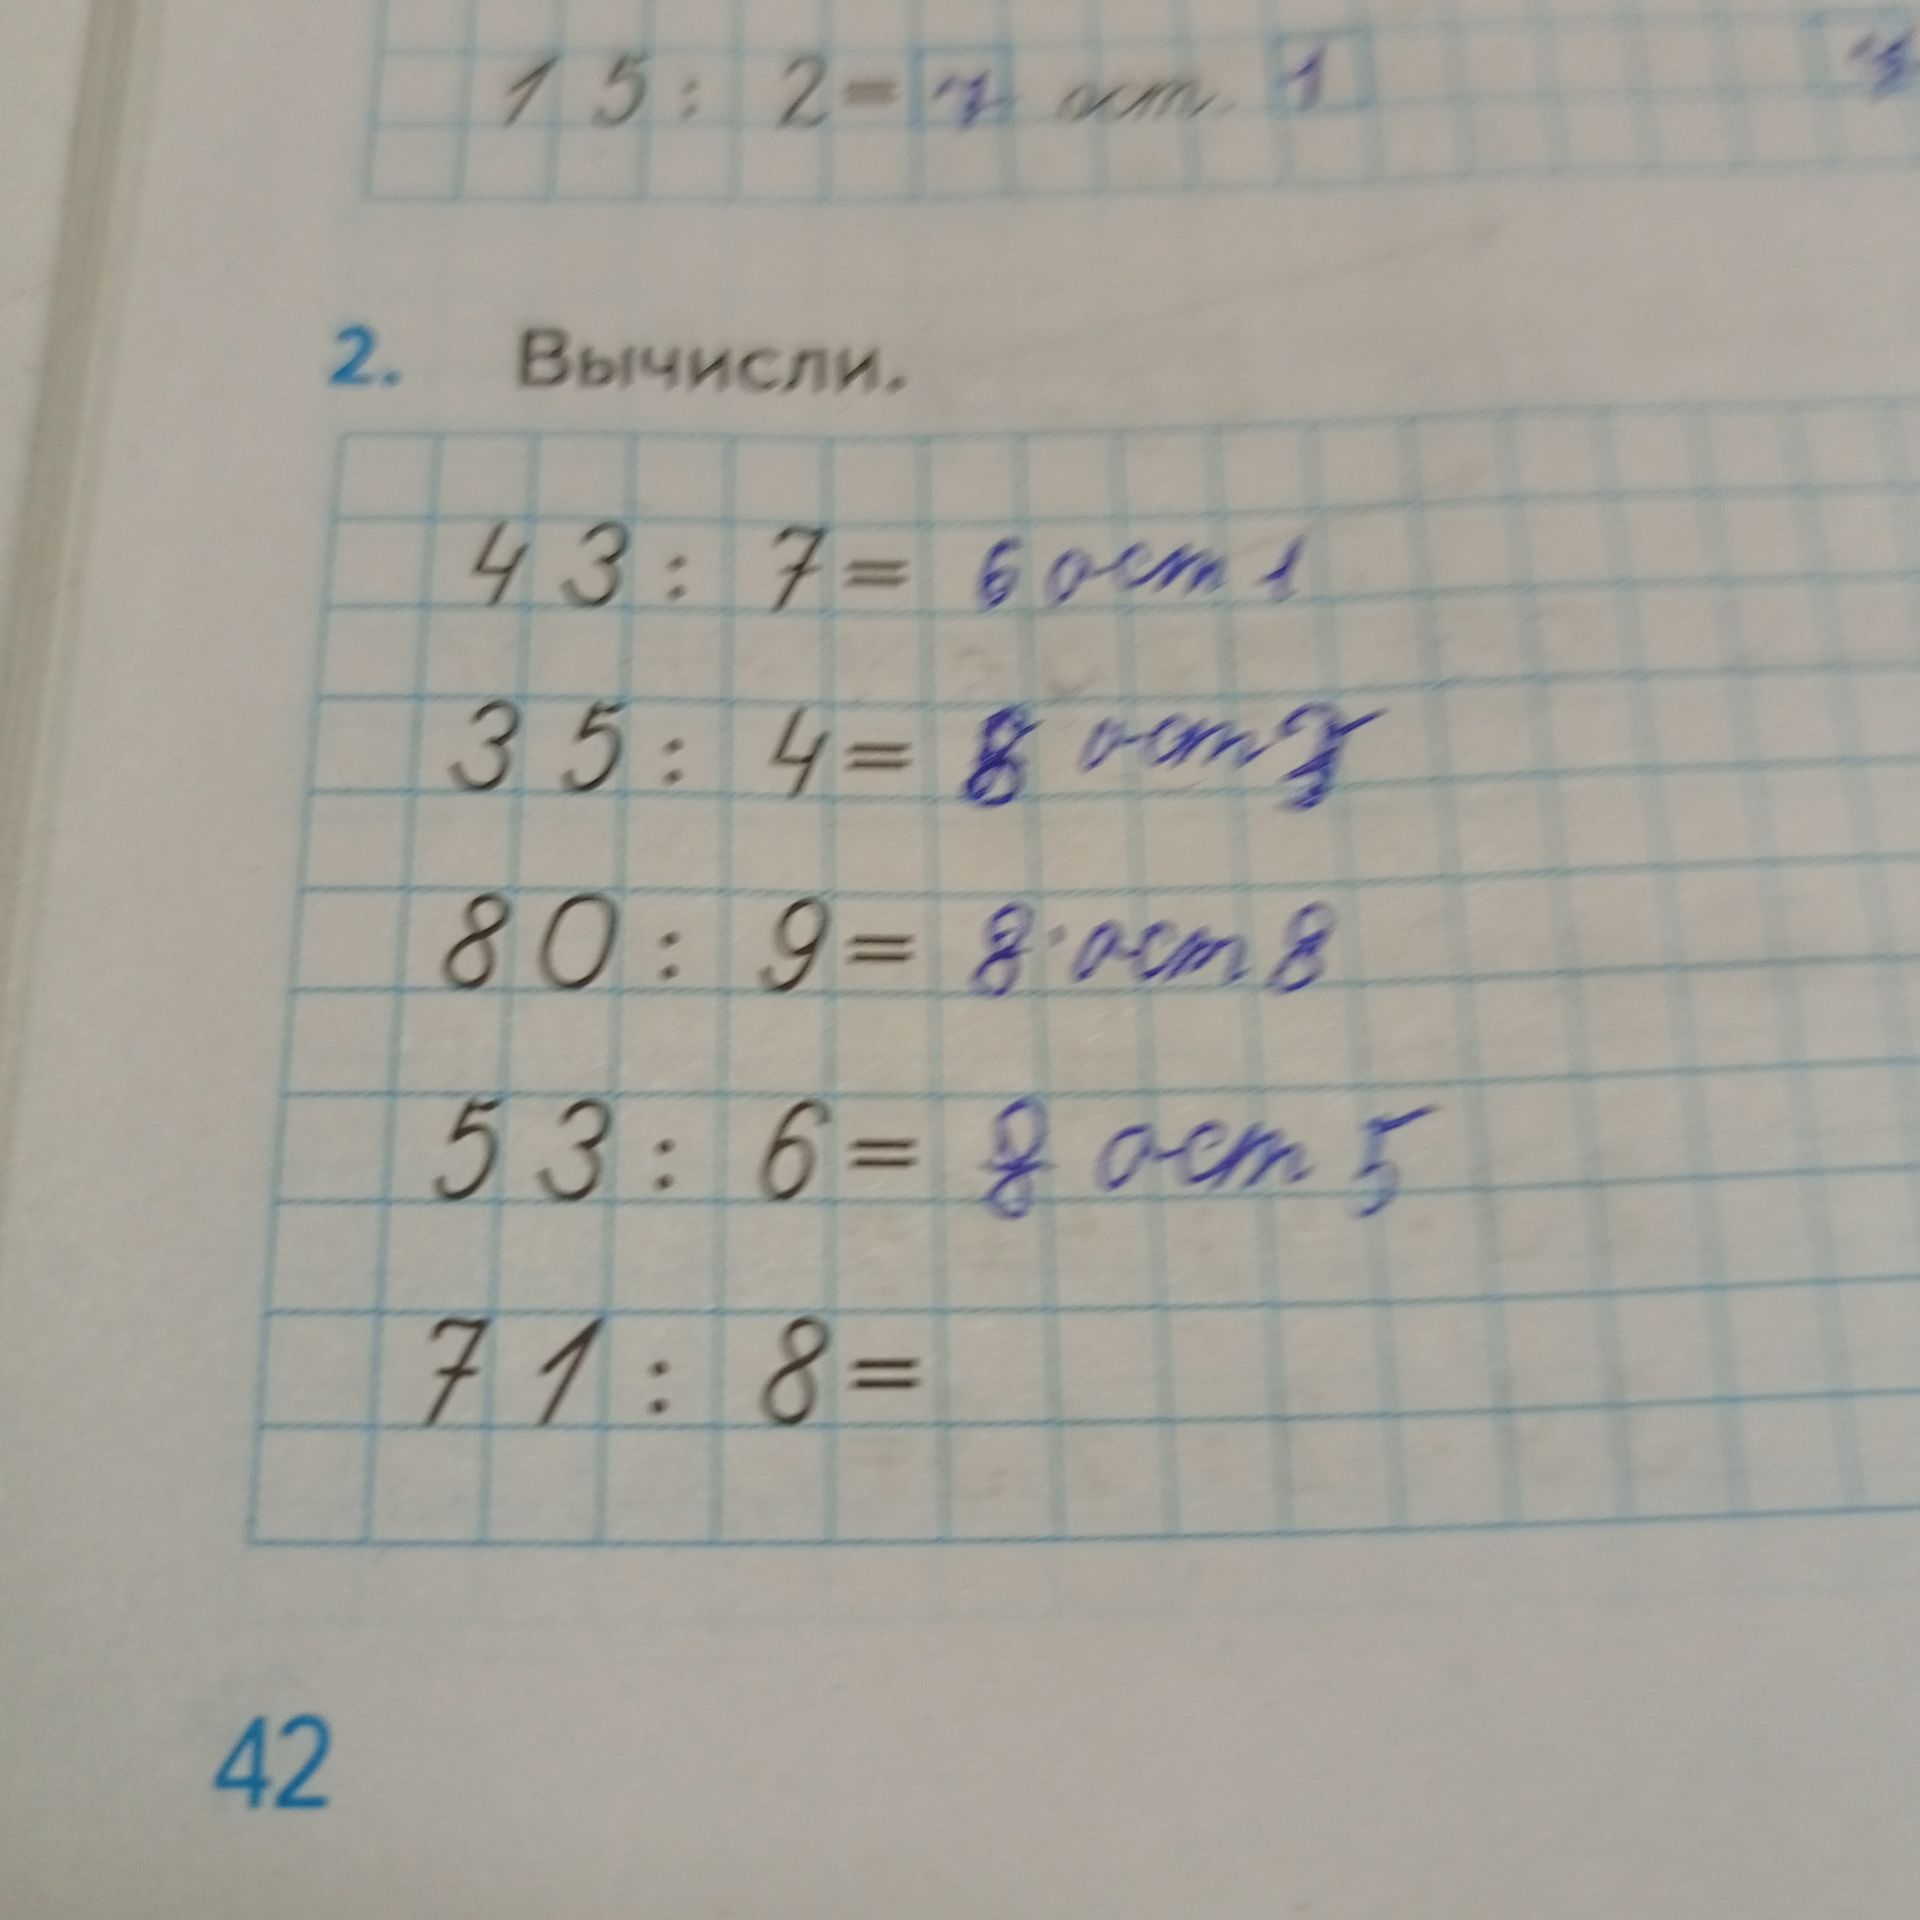 15 : 2 = 7 ост. 1
2. Вычисли.
43 : 7 = 6 ост 1
35 : 4 = 8 ост 3
80 : 9 = 8 ост 8
53 : 6 = 8 ост 5
71 : 8 =
42